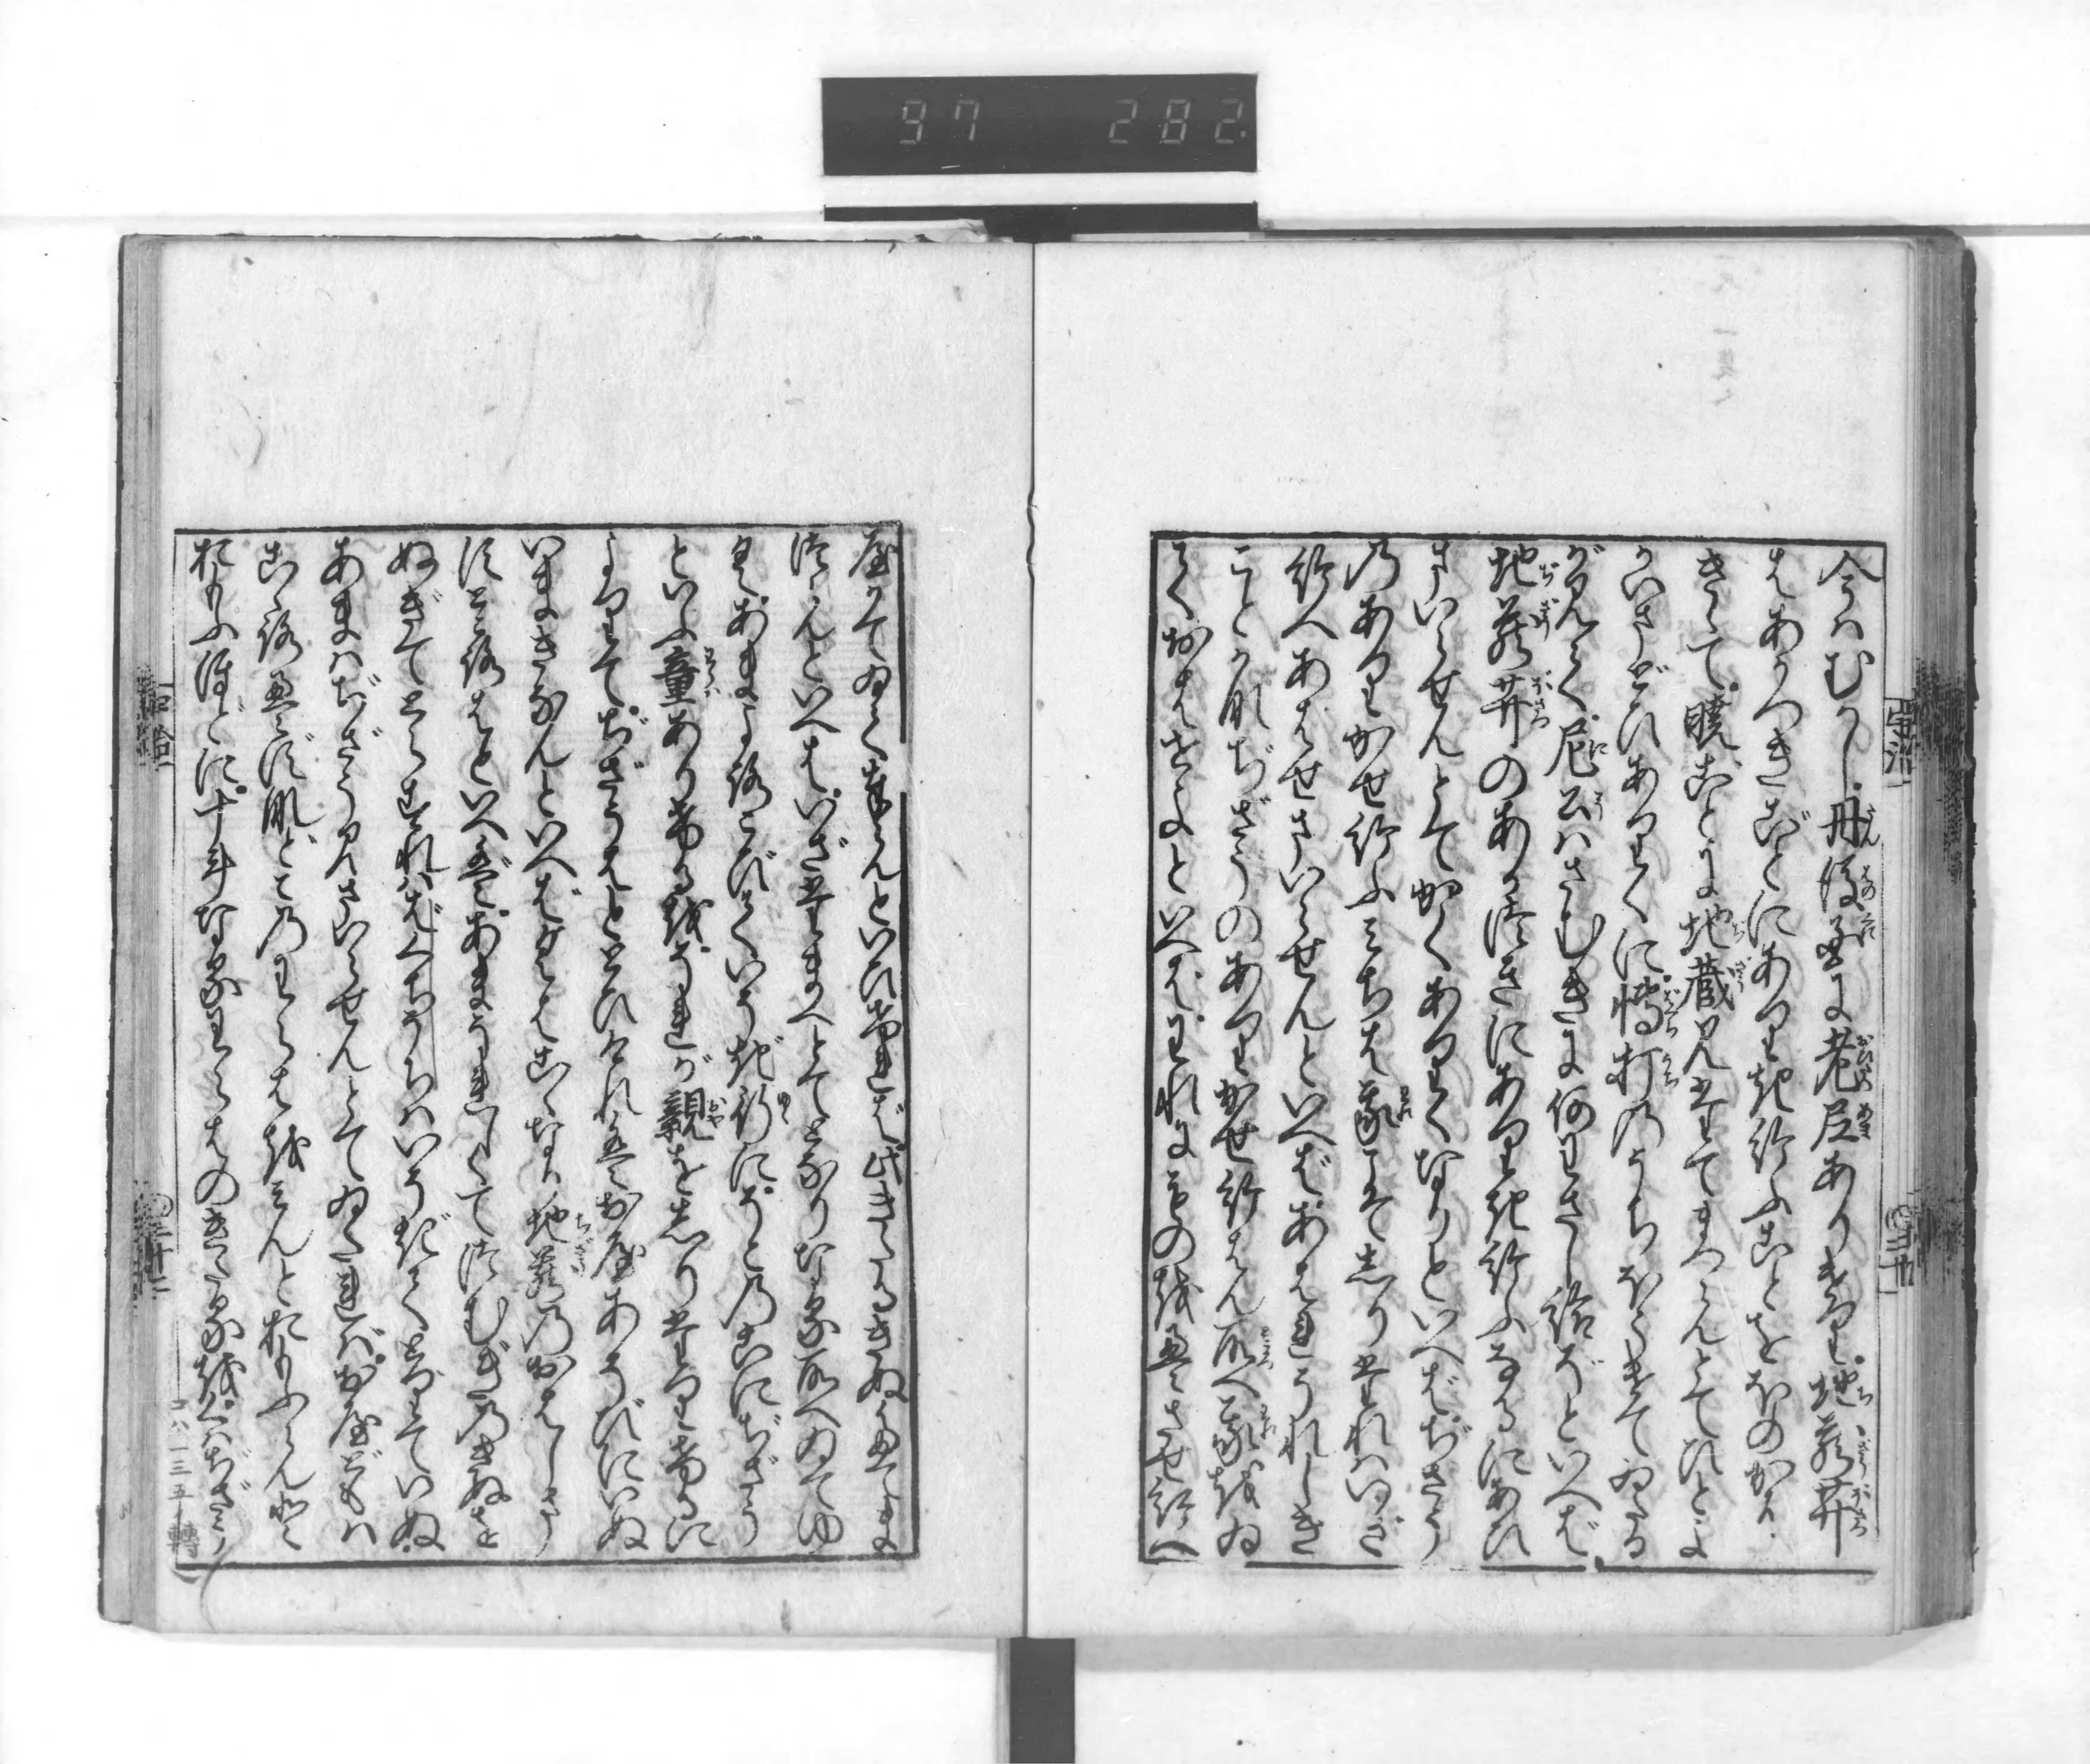 今はむかし丹後国に老尼ありけり地蔵菩薩
はあかつきごとにありき給ふことをほのかに
きゝて暁ことに地蔵見奉てまつらんとてひとよ
かいさまどひありくに博打のうちほうけてゐたる
が見て尼公はさむきに何わざし給ぞといへば
地蔵菩薩のあか月にありき給ふなるにあひ
まいらせんとてかくありくなりといへばぢざう
のありかせ給ふみちは我こそ志り奉れはいざ
給へあはせまいらせんといへばあはれうれしき
ことかなぢざうのありかせ給はん所へ我をゐ
ておはせよといへばわれにものをえさせ給へ
やがてゐて奉らんといひければ此きたるきぬ奉てま
つらんといへはいざ給まへとてとなりなる所へゐてゆ
く尼よろこびていそぎ行にそこのこにぢざう
といふ童ありけるをそれが親を志りたりけるに
よりてぢざうはととひけれは親あそびにいぬ
いまきなんといへばくはこゝなり地蔵のおはします
所はといへば尼うれしくてつむぎのきぬを
ぬぎてとらすればばくちうちはいそぎてとりていぬ
尼はぢざう見まいらせんとてゐたれば親どもは
心得ずなどこのわらはを見んと思ふらんと
思ふ程に十斗なるわらはのきたるをくはぢざう
宇治
拾